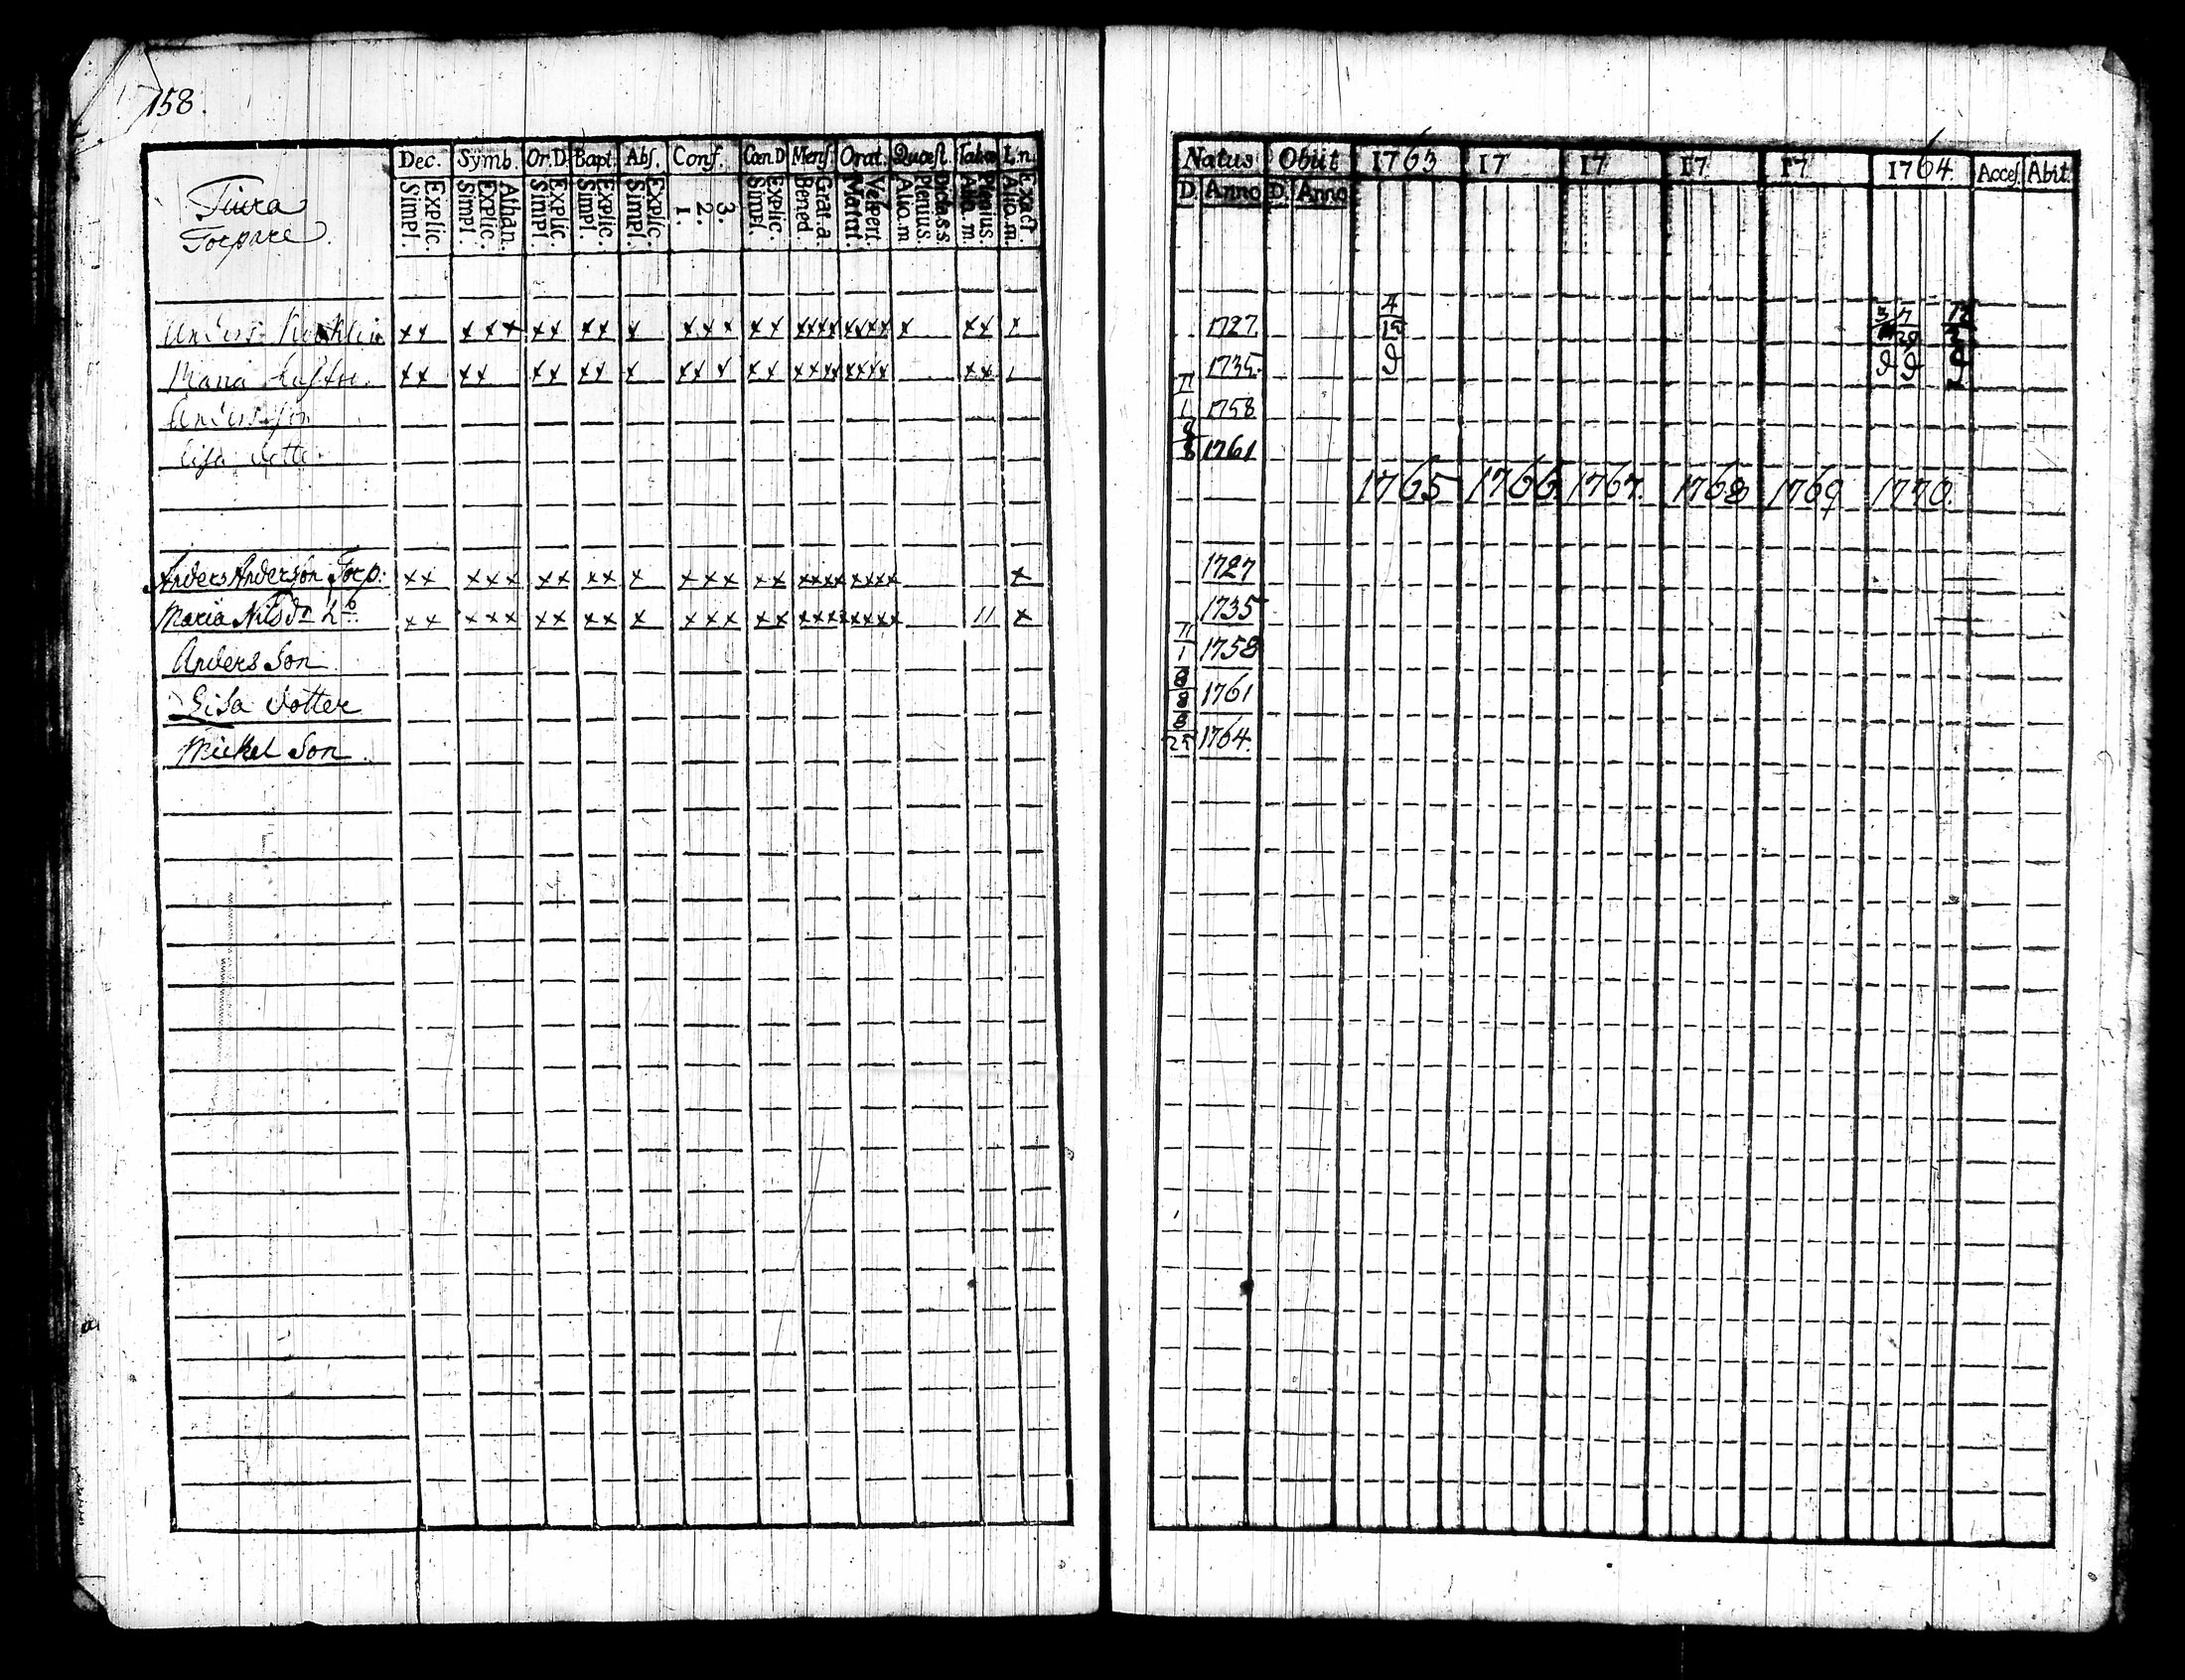 158.
Dec. Symb. Or.D. Bapt. Abs. Conf. Cœn.D. Mens. Orat. Quæst. L.n.
Simpl. Explic. Simpl. Explic. Athan. Simpl. Explic. Simpl. Explic. Simpl. Explic. 1. 2. 3. Simpl. Explic. Bened. Grat. a. Matut. Vespert. Alio. m. Plenius. Dicta.s.s. Alio. m. Plenius. Alio. m. Exact.
Torpare
Anders
Maria
Anders son
Lisa dotter
Anders Anderson Torp.
Maria Nilsdr
Anders Son
Lisa dotter
Mickel Son
Natus Obiit 1763 17 17 17 17 1764 Acces. Abit.
D. Anno D. Anno
4 3 7 12
1727
1735
11
1 1758
8
8 1761
1765 1766 1767. 1768 1769 1770.
1727
1735
11
1 1758
8
8 1761
8
25 1764.